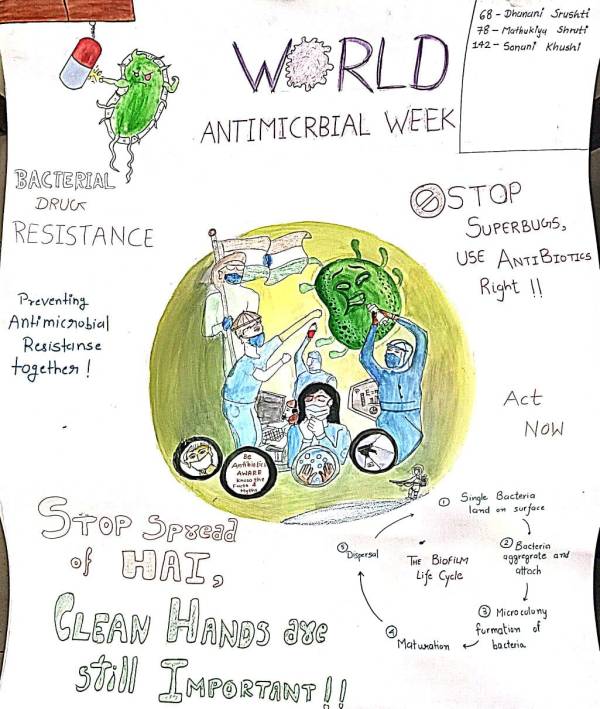 68 - Dhanani Srushti
78 - Mathukiya Shruti
142 - Sonani Khushi
WORLD
ANTIMICRBIAL WEEK
BACTERIAL
DRUG
RESISTANCE
STOP
SUPERBUGS,
USE ANTIBIOTICS
Right !!
Preventing
Antimicrobial
Resistanse
together !
Act
Now
Be
Antibiotics
AWARE
Know the
Facts &
Myths
STOP Spread
of HAI,
CLEAN HANDS are
still IMPORTANT!!
THE BIOFILM
Life Cycle
① Single Bacteria
land on surface
② Bacteria
aggregate and
attach
③ Microcolony
formation of
bacteria
④ Maturation
⑤ Dispersal